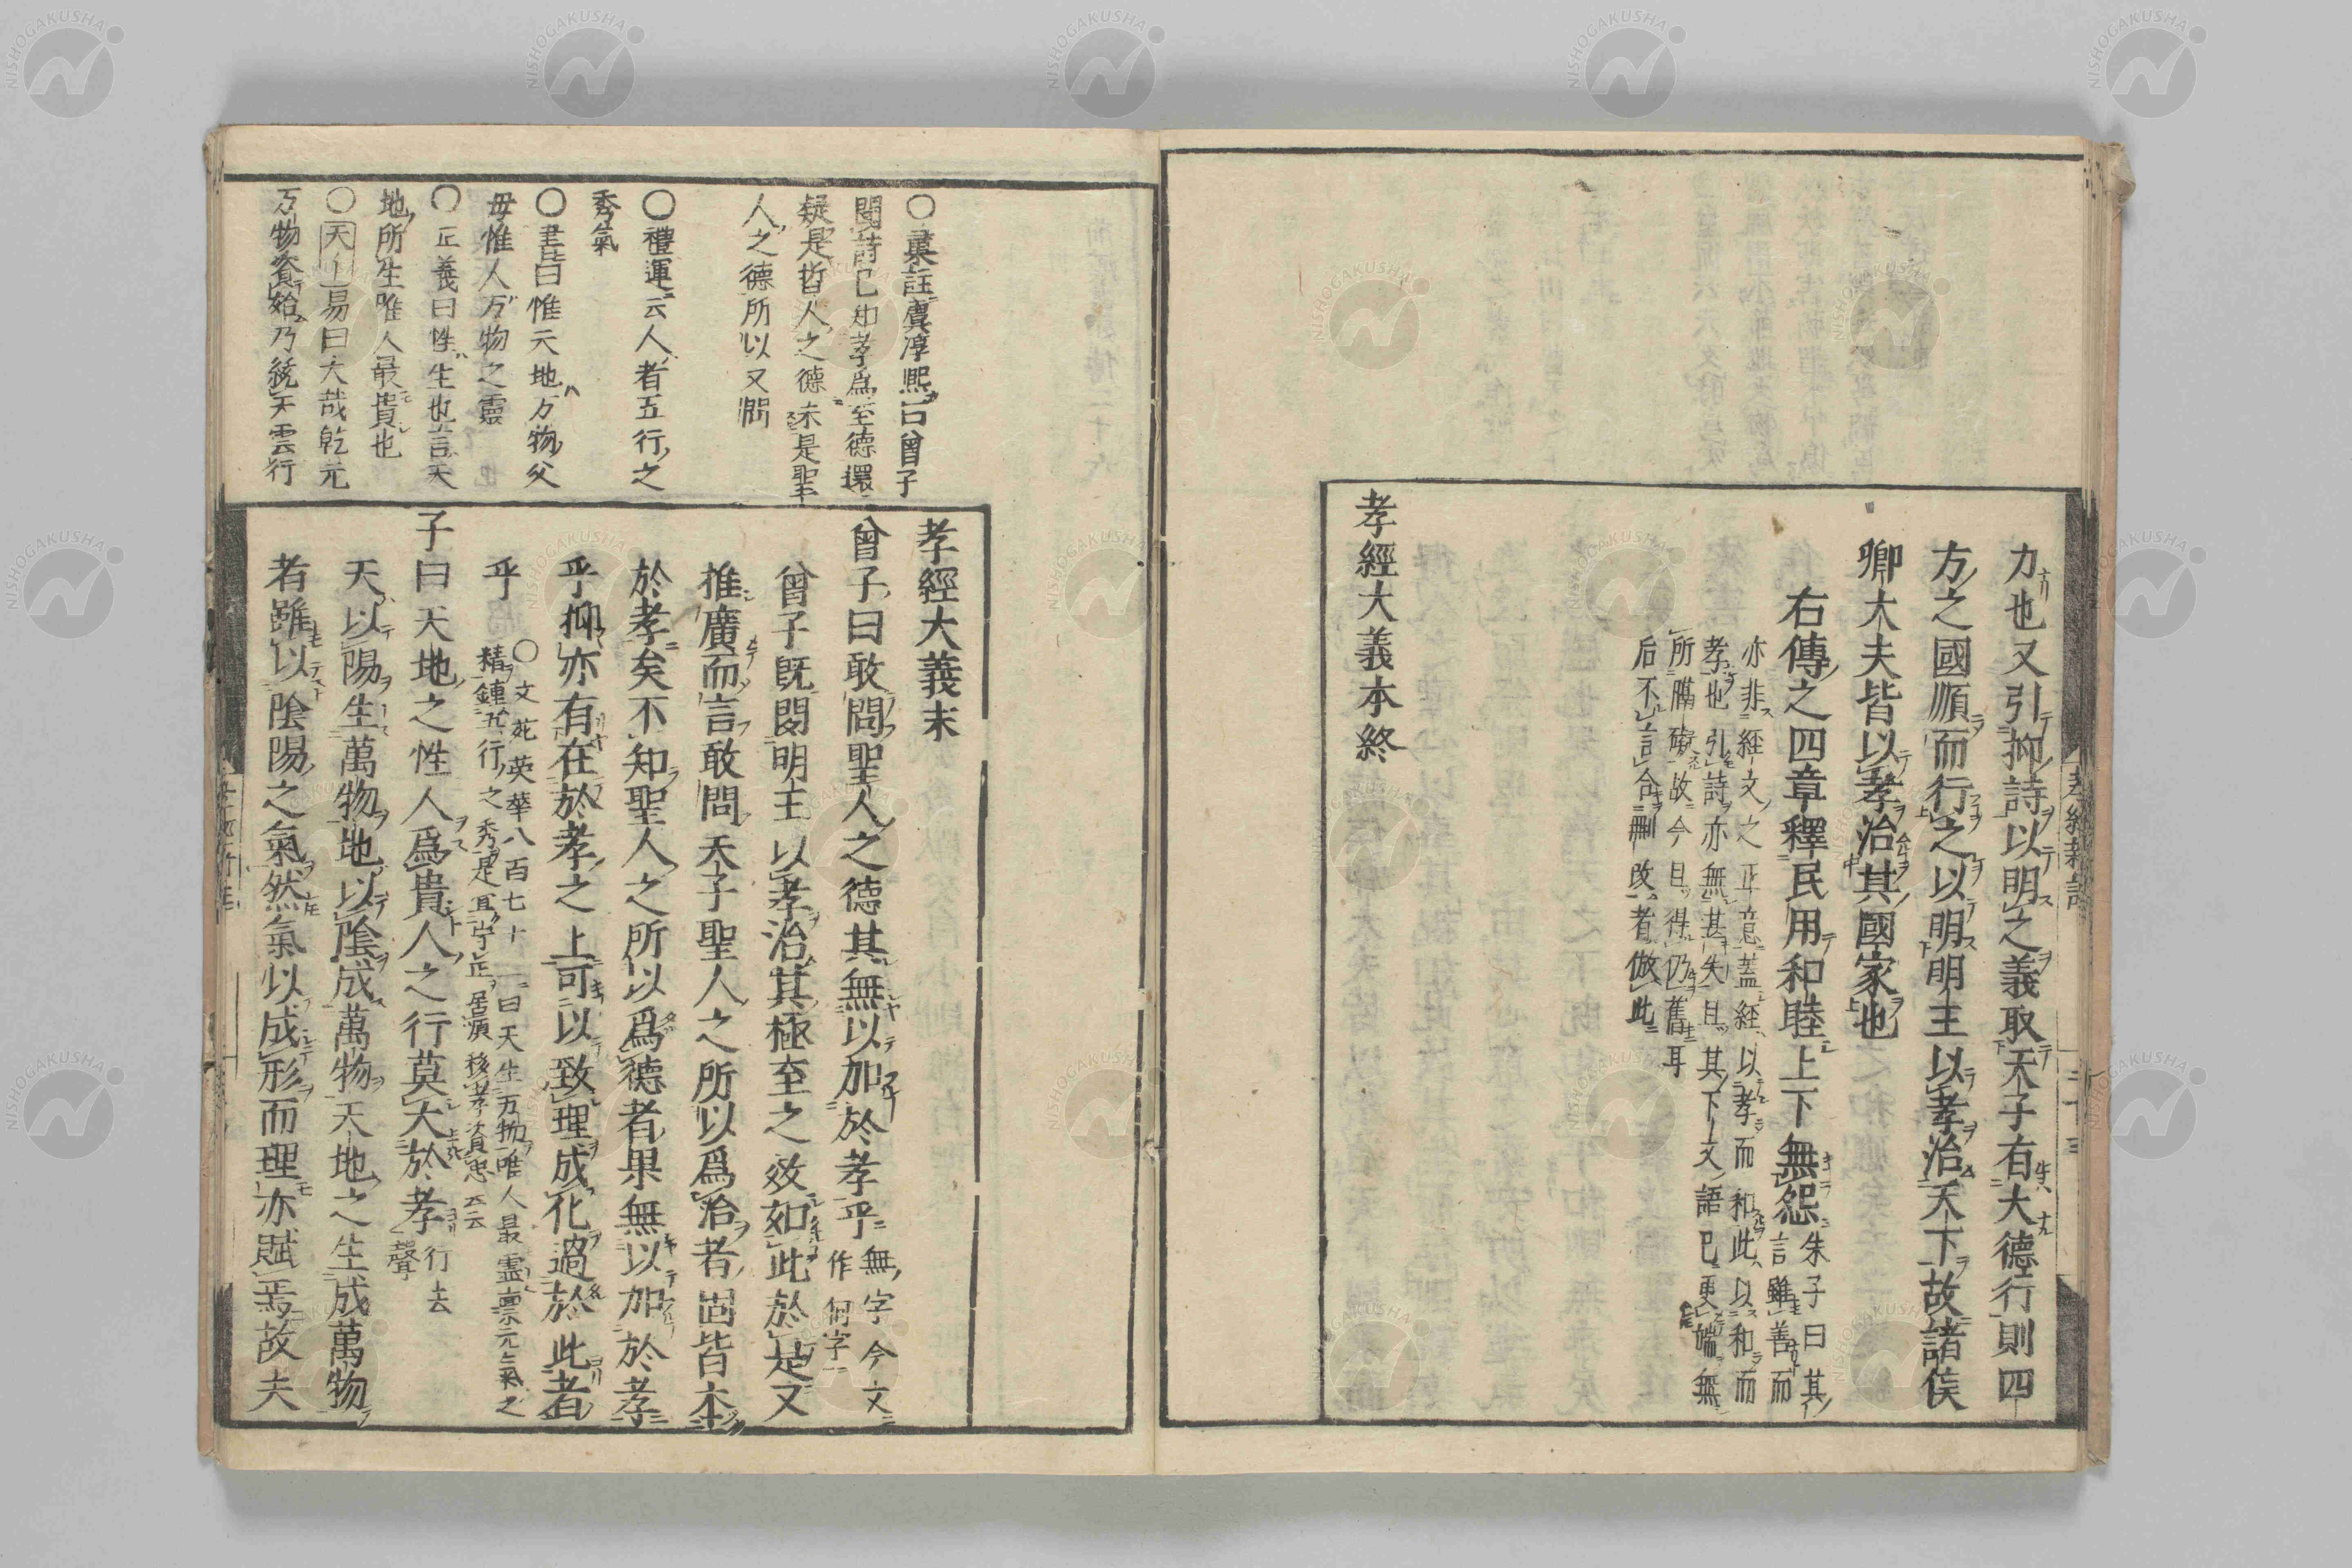 力也又引抑詩以明之義取天子有大德行則四
方之國順而行之以明明王以孝治天下故諸侯
卿大夫皆以孝治其國家也
右傳之四章釋民用和睦上下無怨
朱子曰其
言雖善而
亦非經文之正意蓋經以孝而和此以和而
孝也引詩亦無甚失且其下文語已更端無
所隔礙故今且得仍舊耳
后不言合刪改者倣此
孝經大義本終
孝經大義末
曾子曰敢問聖人之德其無以加於孝乎
無字今文
作何字
曾子既聞明王以孝治其極至之效如此於是又
推廣而言敢問天子聖人之所以爲治者固皆本
於孝矣不知聖人之所以爲德者果無以加於孝
乎抑亦有在於孝之上可以致理成化過於此者
乎
○文苑英華八百七十一曰天生万物唯人最靈稟元氣之
精鍾五行之秀是
子曰天地之性人爲貴人之行莫大於孝
行去
聲
天以陽生萬物地以陰成萬物天地之生成萬物
者雖以陰陽之氣然氣以成形而理亦賦焉故夫
○彙註虞淳熙曰曾子
聞詩已知孝爲至德還
疑是哲人之德未是聖
人之德所以又問
○禮運云人者五行之
秀氣
○書曰惟天地万物父
母惟人万物之靈
○正義曰性生也言天
地所生唯人最貴也
○天以易曰大哉乾元
万物資始乃統天雲行
孝經
二十三
NISHOGAKUSHA